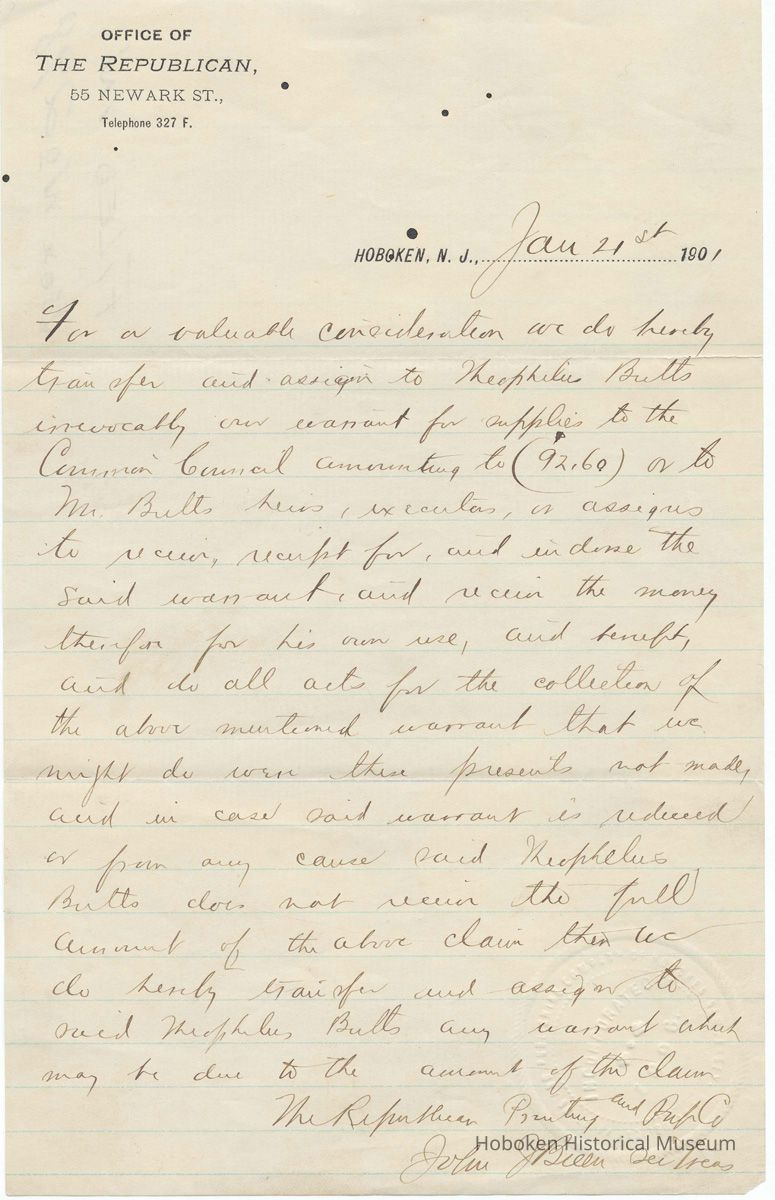 OFFICE OF
THE REPUBLICAN,
55 NEWARK ST.,
Telephone 327 F.
HOBOKEN, N. J., Jan 21st 1901
For a valuable consideration we do hereby
transfer and assign to Theophilus Butts
irrevocably our warrant for supplies to the
Common Council amounting to (92.60) or to
Mr. Butts heirs, executors, or assigns
to receive, receipt for, and indorse the
said warrant, and receive the money
therefor for his own use, and benefit,
and do all acts for the collection of
the above mentioned warrant that we
might do were these presents not made,
and in case said warrant is reduced
or from any cause said Theophilus
Butts does not receive the full
amount of the above claim then we
do hereby transfer and assign to
said Theophilus Butts any warrant which
may be due to the amount of the claim
The Republican Printing and Pub Co
John J Secy Treas
Hoboken Historical Museum